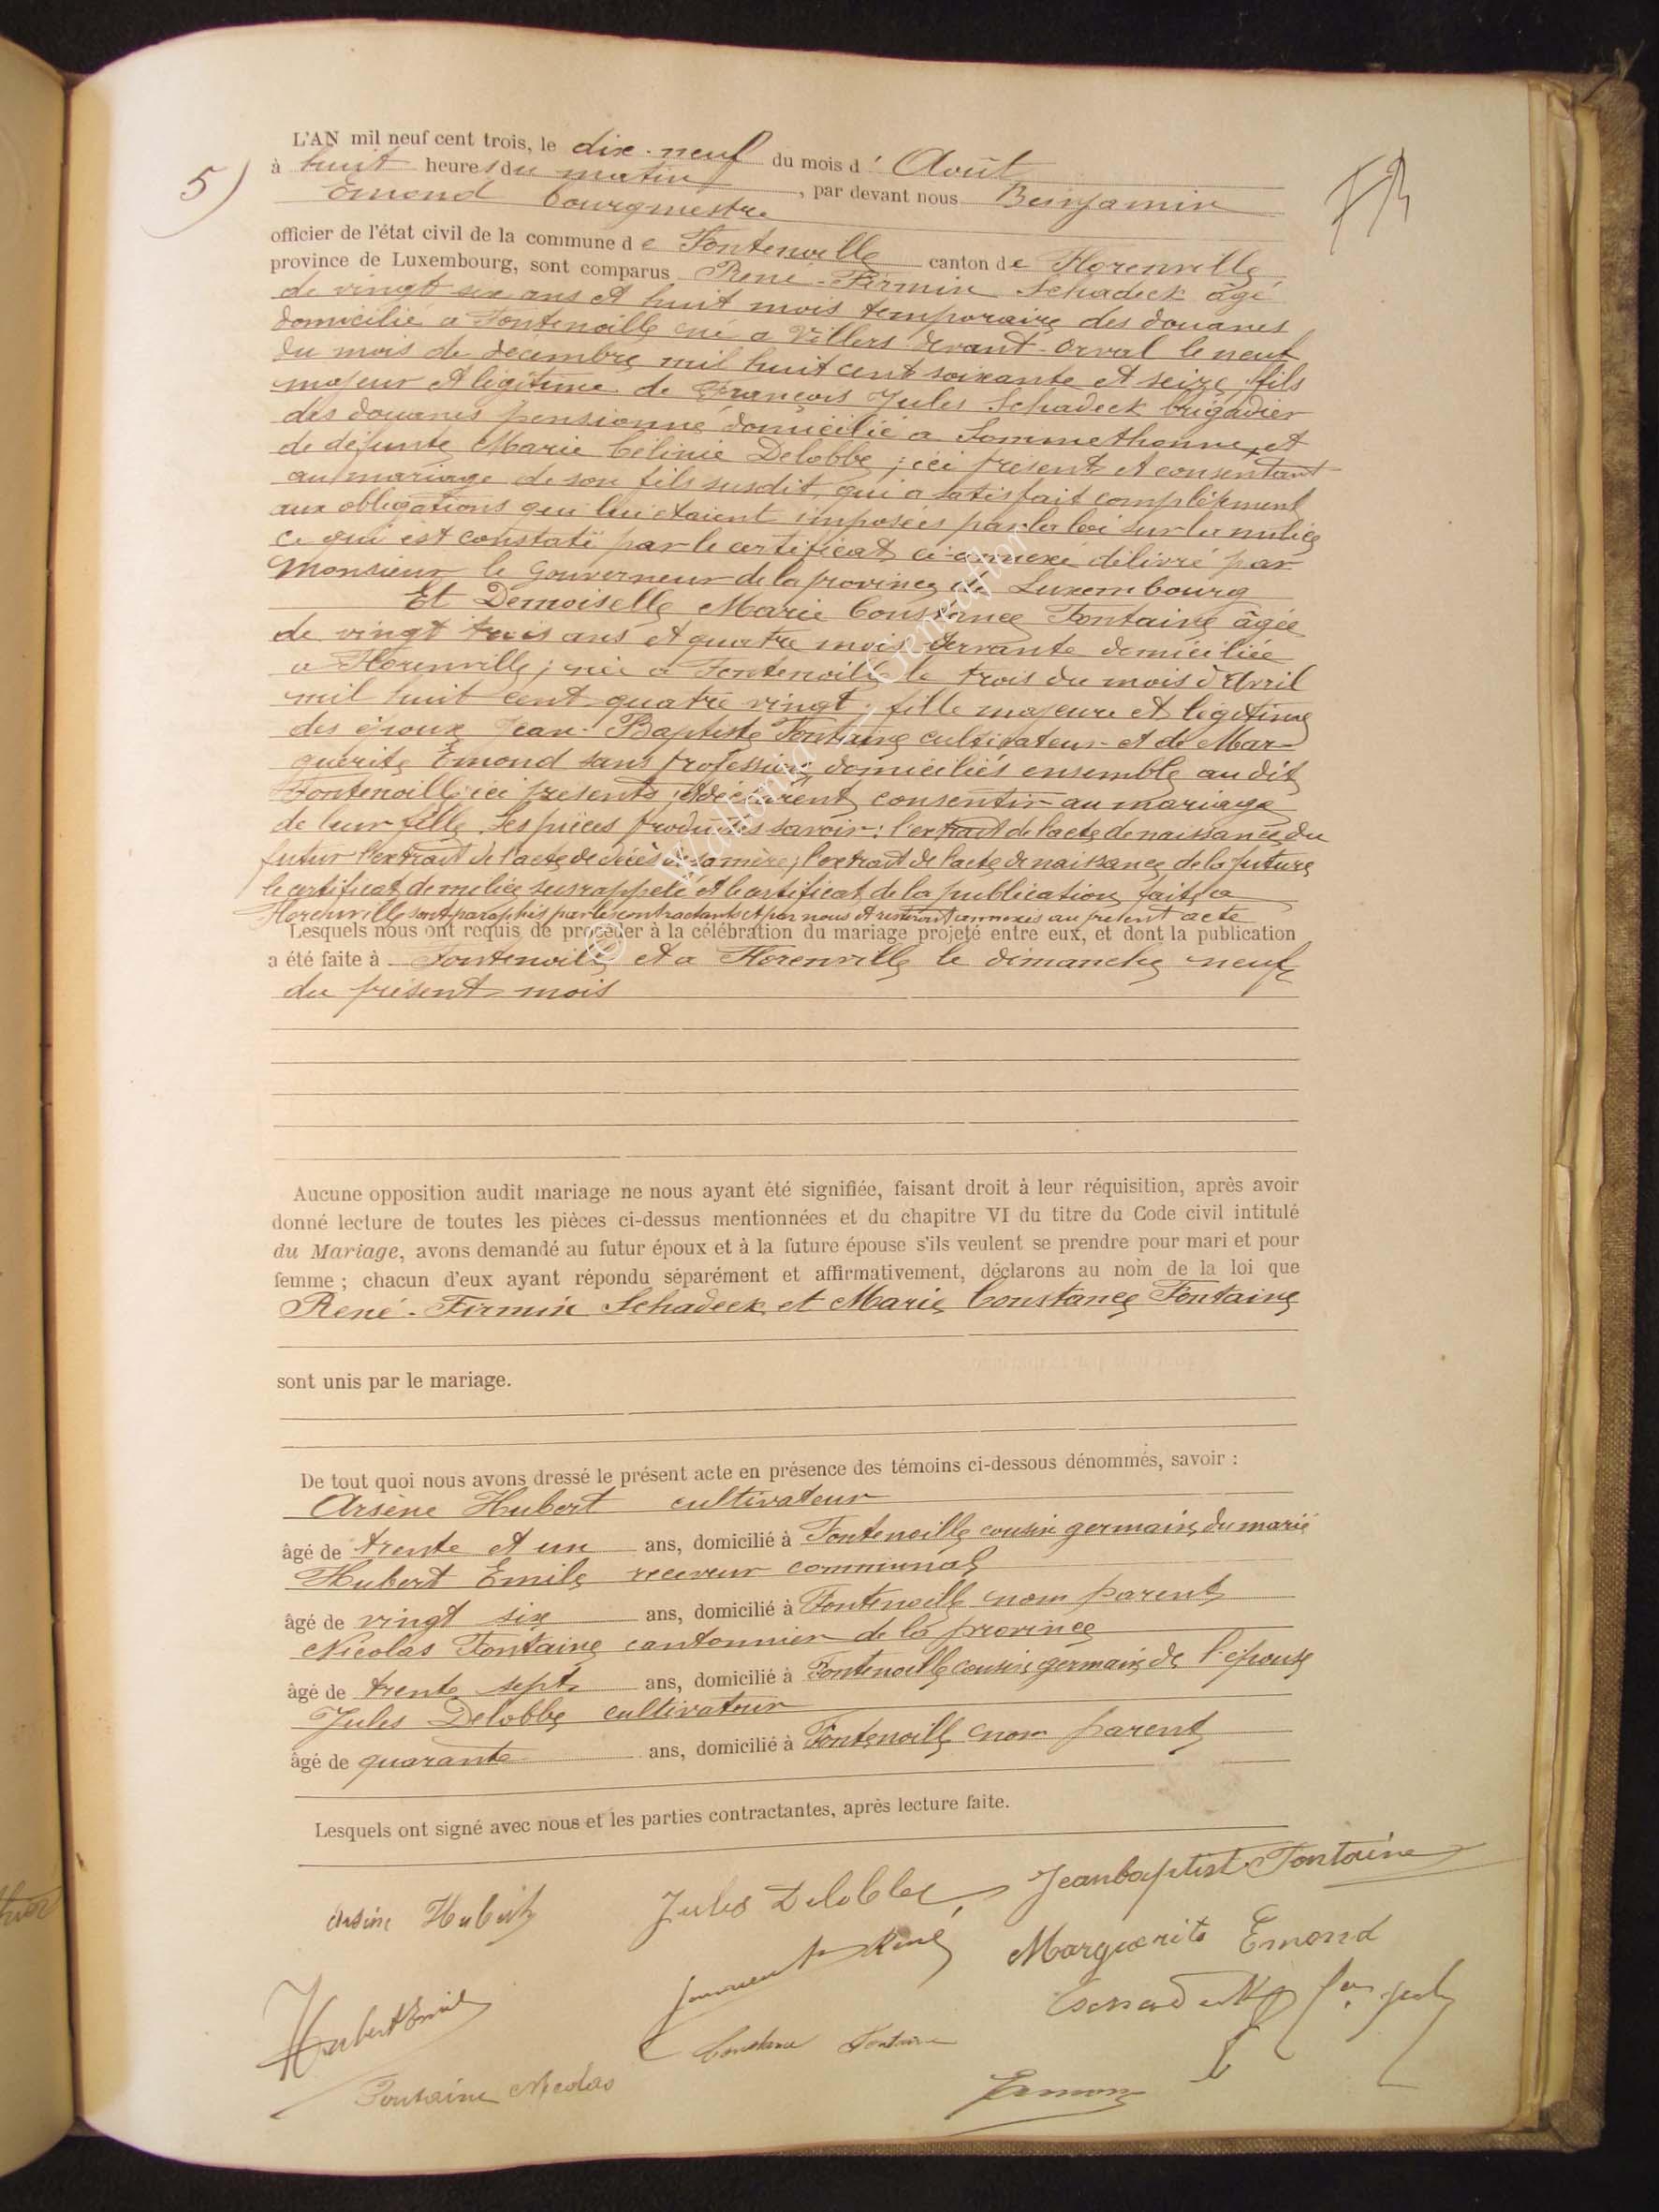 5)
L'AN mil neuf cent trois, le dix-neuf du mois d' Août
à huit heures du matin, par devant nous Benjamin
Emond bourgmestre
officier de l'état civil de la commune de Fontenoille canton de Florenville
province de Luxembourg, sont comparus René-Firmin Schadeck âgé
de vingt six ans et huit mois temporaire des douanes
domicilié a Fontenoille né a Villers devant-Orval le neuf
du mois de decembre mil huit cent soixante et seize, fils
majeur et légitime de François Jules Schadeck brigadier
des douanes pensionné domicilié a Sommethonne, et
de défunte Marie Célinie Delobbe ; ici présent et consentant
au mariage de son fils susdit, qui a satisfait complètement
aux obligations qui lui étaient imposées par la loi sur la milice
ce qui est constaté par le certificat ci-annexé délivré par
Monsieur le Gouverneur de la province de Luxembourg
Et Demoiselle Marie Constance Fontaine âgée
de vingt trois ans et quatre mois servante domiciliée
a Florenville ; née a Fontenoille le trois du mois d'Avril
mil huit cent quatre vingt ; fille majeure et légitime
des époux Jean-Baptiste Fontaine cultivateur et de Mar-
guerite Emond sans profession, domiciliés ensemble au dit
Fontenoille ici présents ; déclarent consentir au mariage
de leur fille. Les pièces produites savoir : l'extrait de l'acte de naissance du
futur l'extrait de l'acte de décès de sa mère ; l'extrait de l'acte de naissance de la future
le certificat de milice susrappelé et le certificat de la publication faite a
Florenville sont paraphés par les contractants et par nous et resteront annexés au présent acte
Lesquels nous ont requis de procéder à la célébration du mariage projeté entre eux, et dont la publication
a été faite à Fontenoille et a Florenville le dimanche neuf
du présent mois
Aucune opposition audit mariage ne nous ayant été signifiée, faisant droit à leur réquisition, après avoir
donné lecture de toutes les pièces ci-dessus mentionnées et du chapitre VI du titre du Code civil intitulé
du Mariage, avons demandé au futur époux et à la future épouse s'ils veulent se prendre pour mari et pour
femme ; chacun d'eux ayant répondu séparément et affirmativement, déclarons au nom de la loi que
René-Firmin Schadeck et Marie Constance Fontaine
sont unis par le mariage.
De tout quoi nous avons dressé le présent acte en présence des témoins ci-dessous dénommés, savoir :
Arsène Hubert cultivateur
âgé de trente et un ans, domicilié à Fontenoille cousin germain du marié
Hubert Emile receveur communal
âgé de vingt six ans, domicilié à Fontenoille non parent
Nicolas Fontaine cantonnier de la province
âgé de trente sept ans, domicilié à Fontenoille cousin germain de l'épouse
Jules Delobbe cultivateur
âgé de quarante ans, domicilié à Fontenoille non parent
Lesquels ont signé avec nous et les parties contractantes, après lecture faite.
Arsène Hubert Jules Delobbe Jeanbaptist Fontaine
René Marguerite Emond
Hubert Emile
Constance Fontaine
Fontaine Nicolas Emond
© Wallonia - Geneaflor